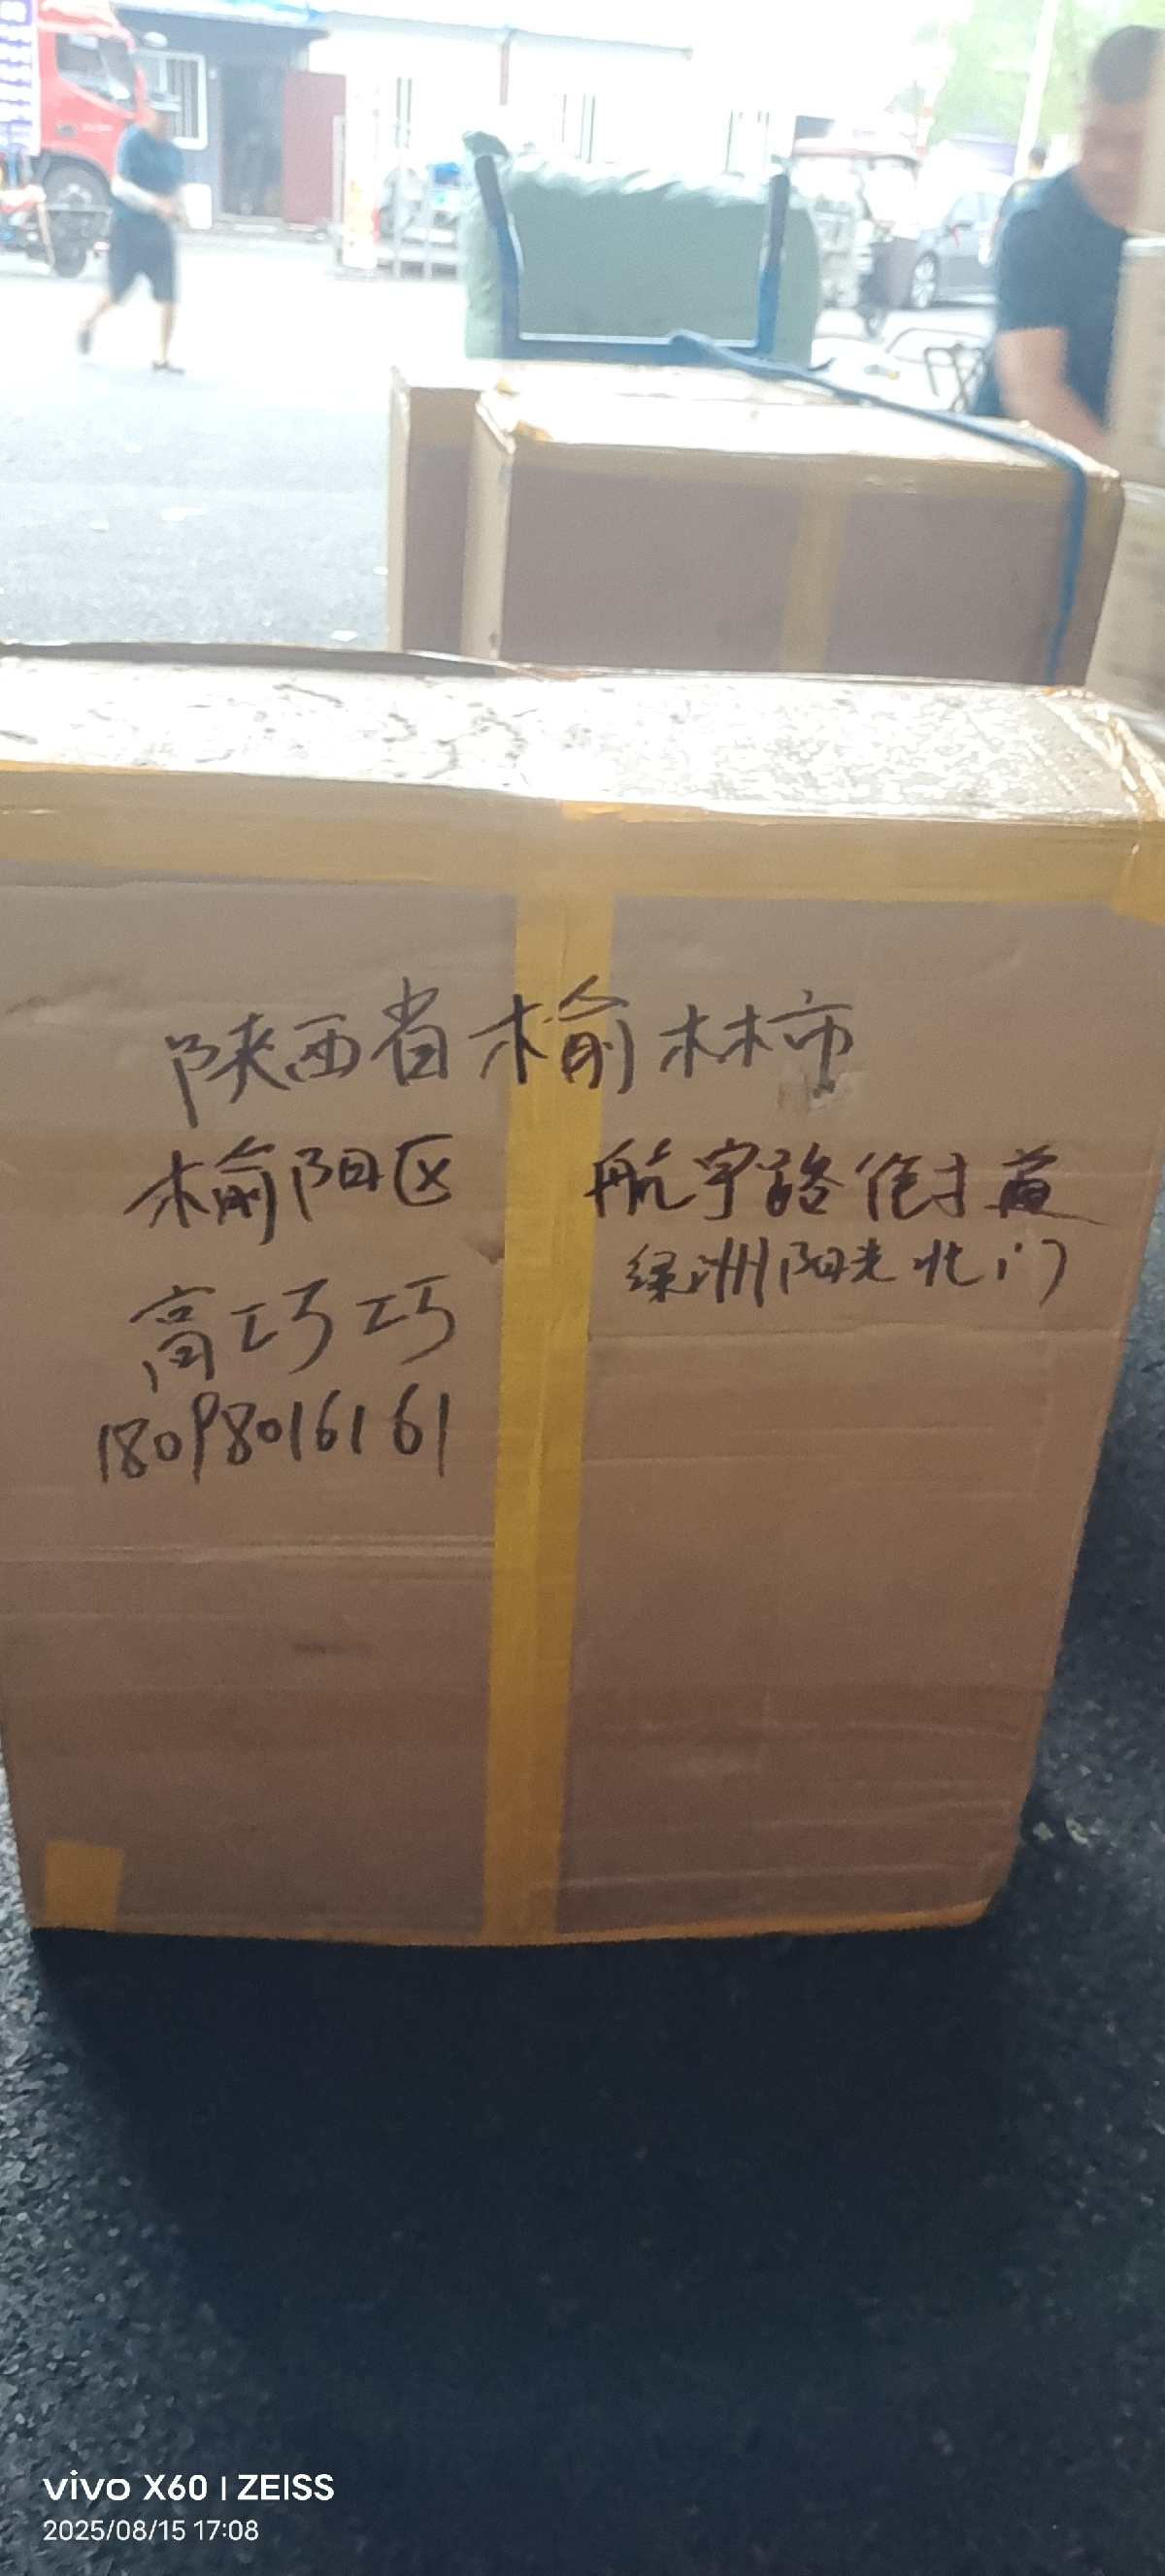 陕西省榆林市
榆阳区 航宇路街道
绿洲阳光北门
高巧巧
18098016161
vivo X60 | ZEISS
2025/08/15 17:08